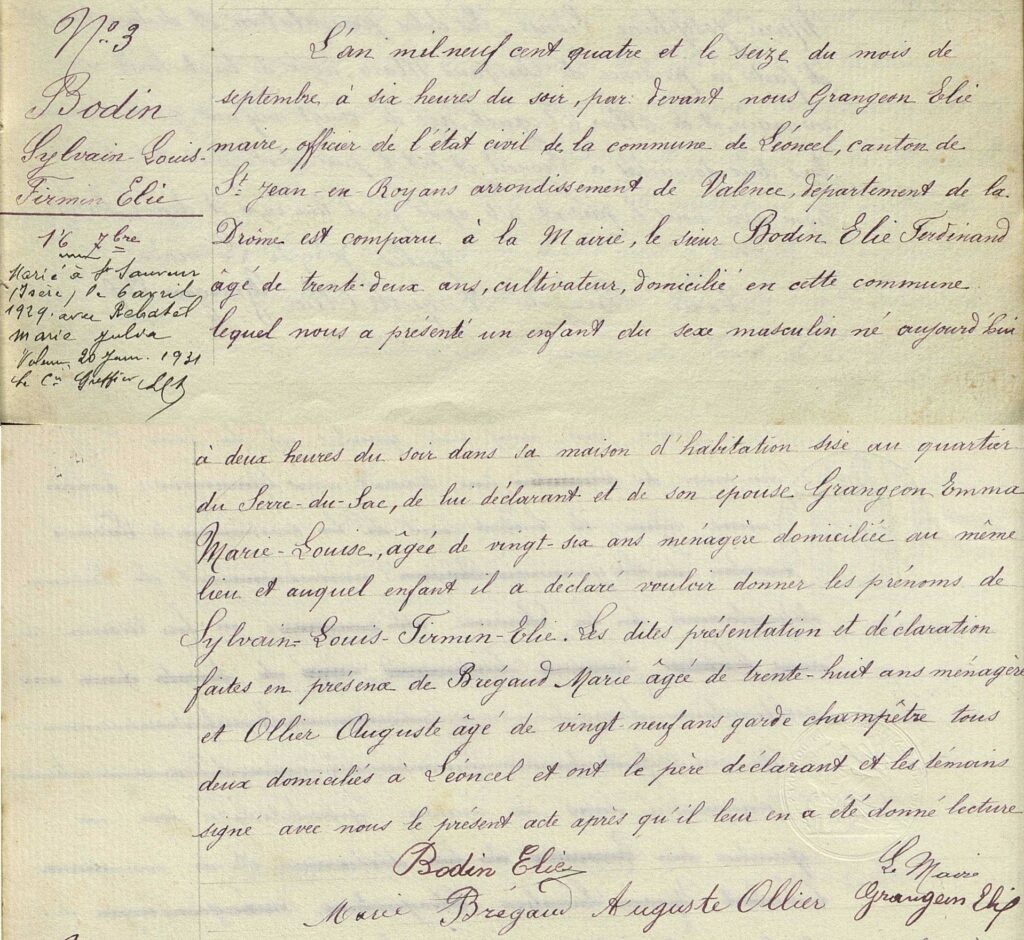 N° 3
Bodin
Sylvain-Louis-
Firmin Elie
16 7bre
Marié à St Sauveur
(Isère) le 6 avril
1929 avec
Marie Julia
Valence 20 Janv. 1931
Le Cis Greffier
L'an mil neuf cent quatre et le seize du mois de
septembre à six heures du soir, par devant nous Grangeon Elie
maire, officier de l'état civil de la commune de Léoncel, canton de
St Jean-en-Royans arrondissement de Valence, département de la
Drôme est comparu à la Mairie, le sieur Bodin Elie Ferdinand
âgé de trente-deux ans, cultivateur, domicilié en cette commune.
lequel nous a présenté un enfant du sexe masculin né aujourd'hui
à deux heures du soir dans sa maison d'habitation sise au quartier
du Serre-du-Sac, de lui déclarant et de son épouse Grangeon Emma
Marie-Louise, âgée de vingt-six ans ménagère domiciliée au même
lieu et auquel enfant il a déclaré vouloir donner les prénoms de
Sylvain-Louis-Firmin-Elie. Les dites présentation et déclaration
faites en présence de Brégaud Marie âgée de trente-huit ans ménagère
et Ollier Auguste âgé de vingt-neuf ans garde champêtre tous
deux domiciliés à Léoncel et ont le père déclarant et les témoins
signé avec nous le présent acte après qu'il leur en a été donné lecture
Bodin Elie
Le Maire
Marie Brégaud Auguste Ollier Grangeon Elie